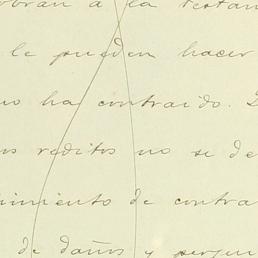 obran á la testan
le pueden hacer
no ha contraido.
os reditos no se de
imiento de contra
de daños y perjui